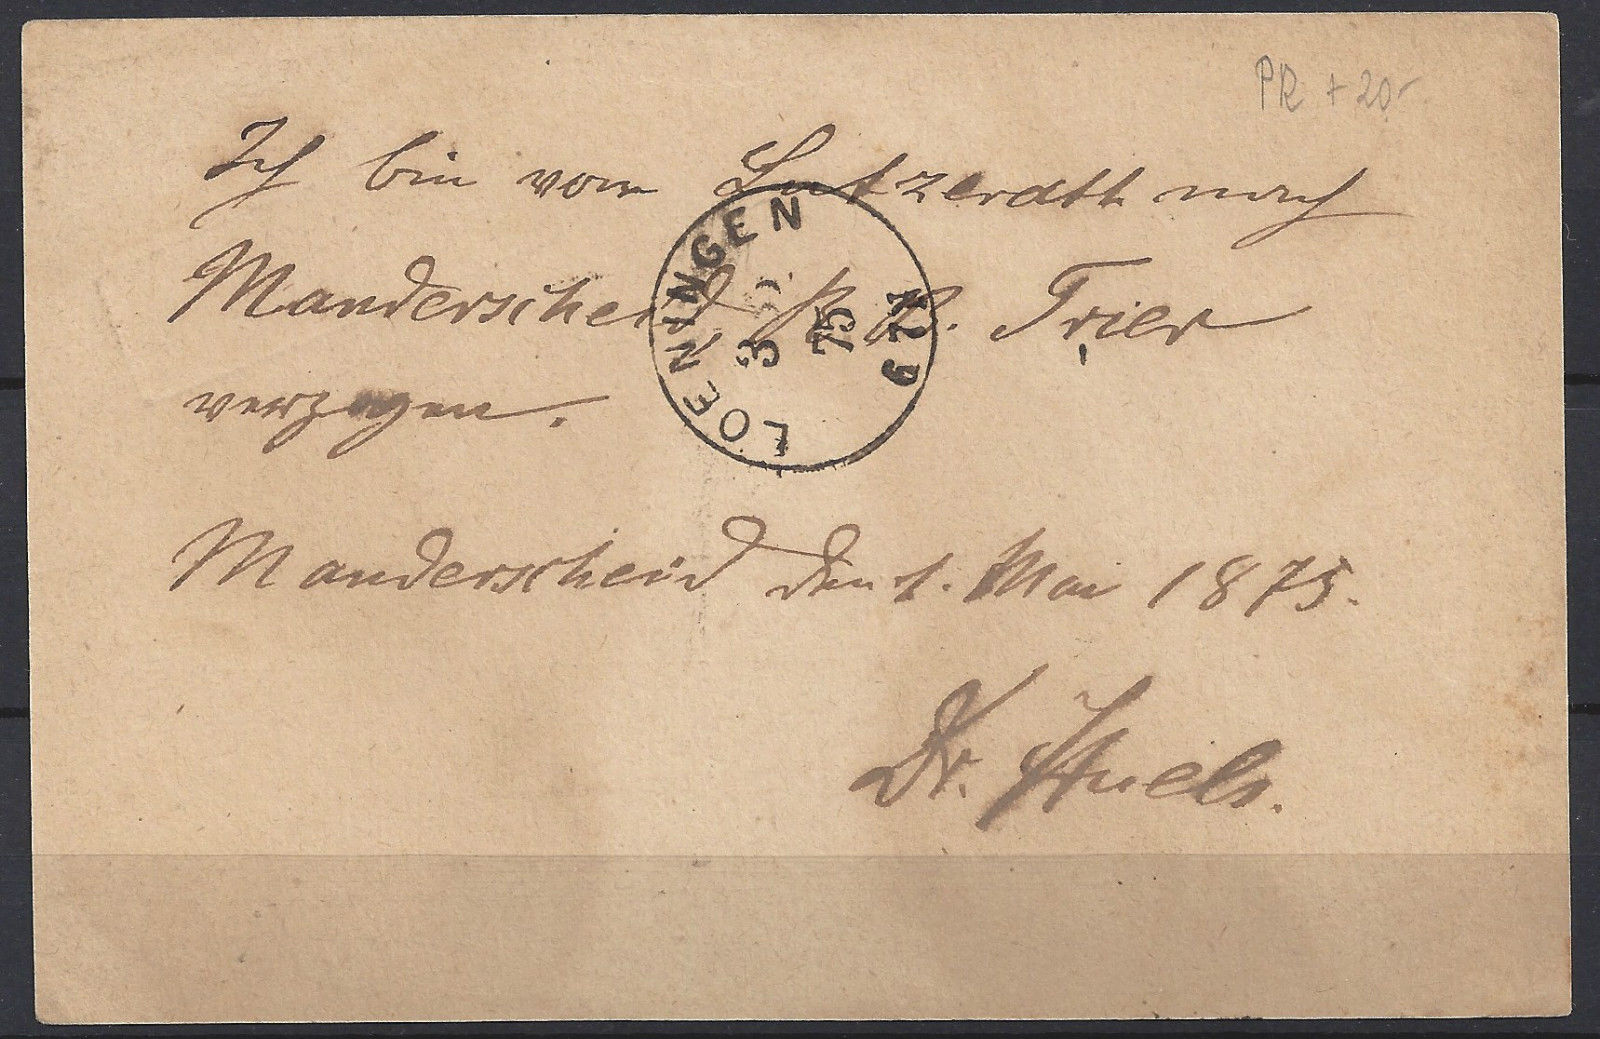 PR + 20-
Ich bin von Lutzerath nach
Manderscheid R. B. Trier
verzogen.
LOENINGEN
3 5
75
6 7 N
Manderscheid den 1. Mai 1875.
Dr.